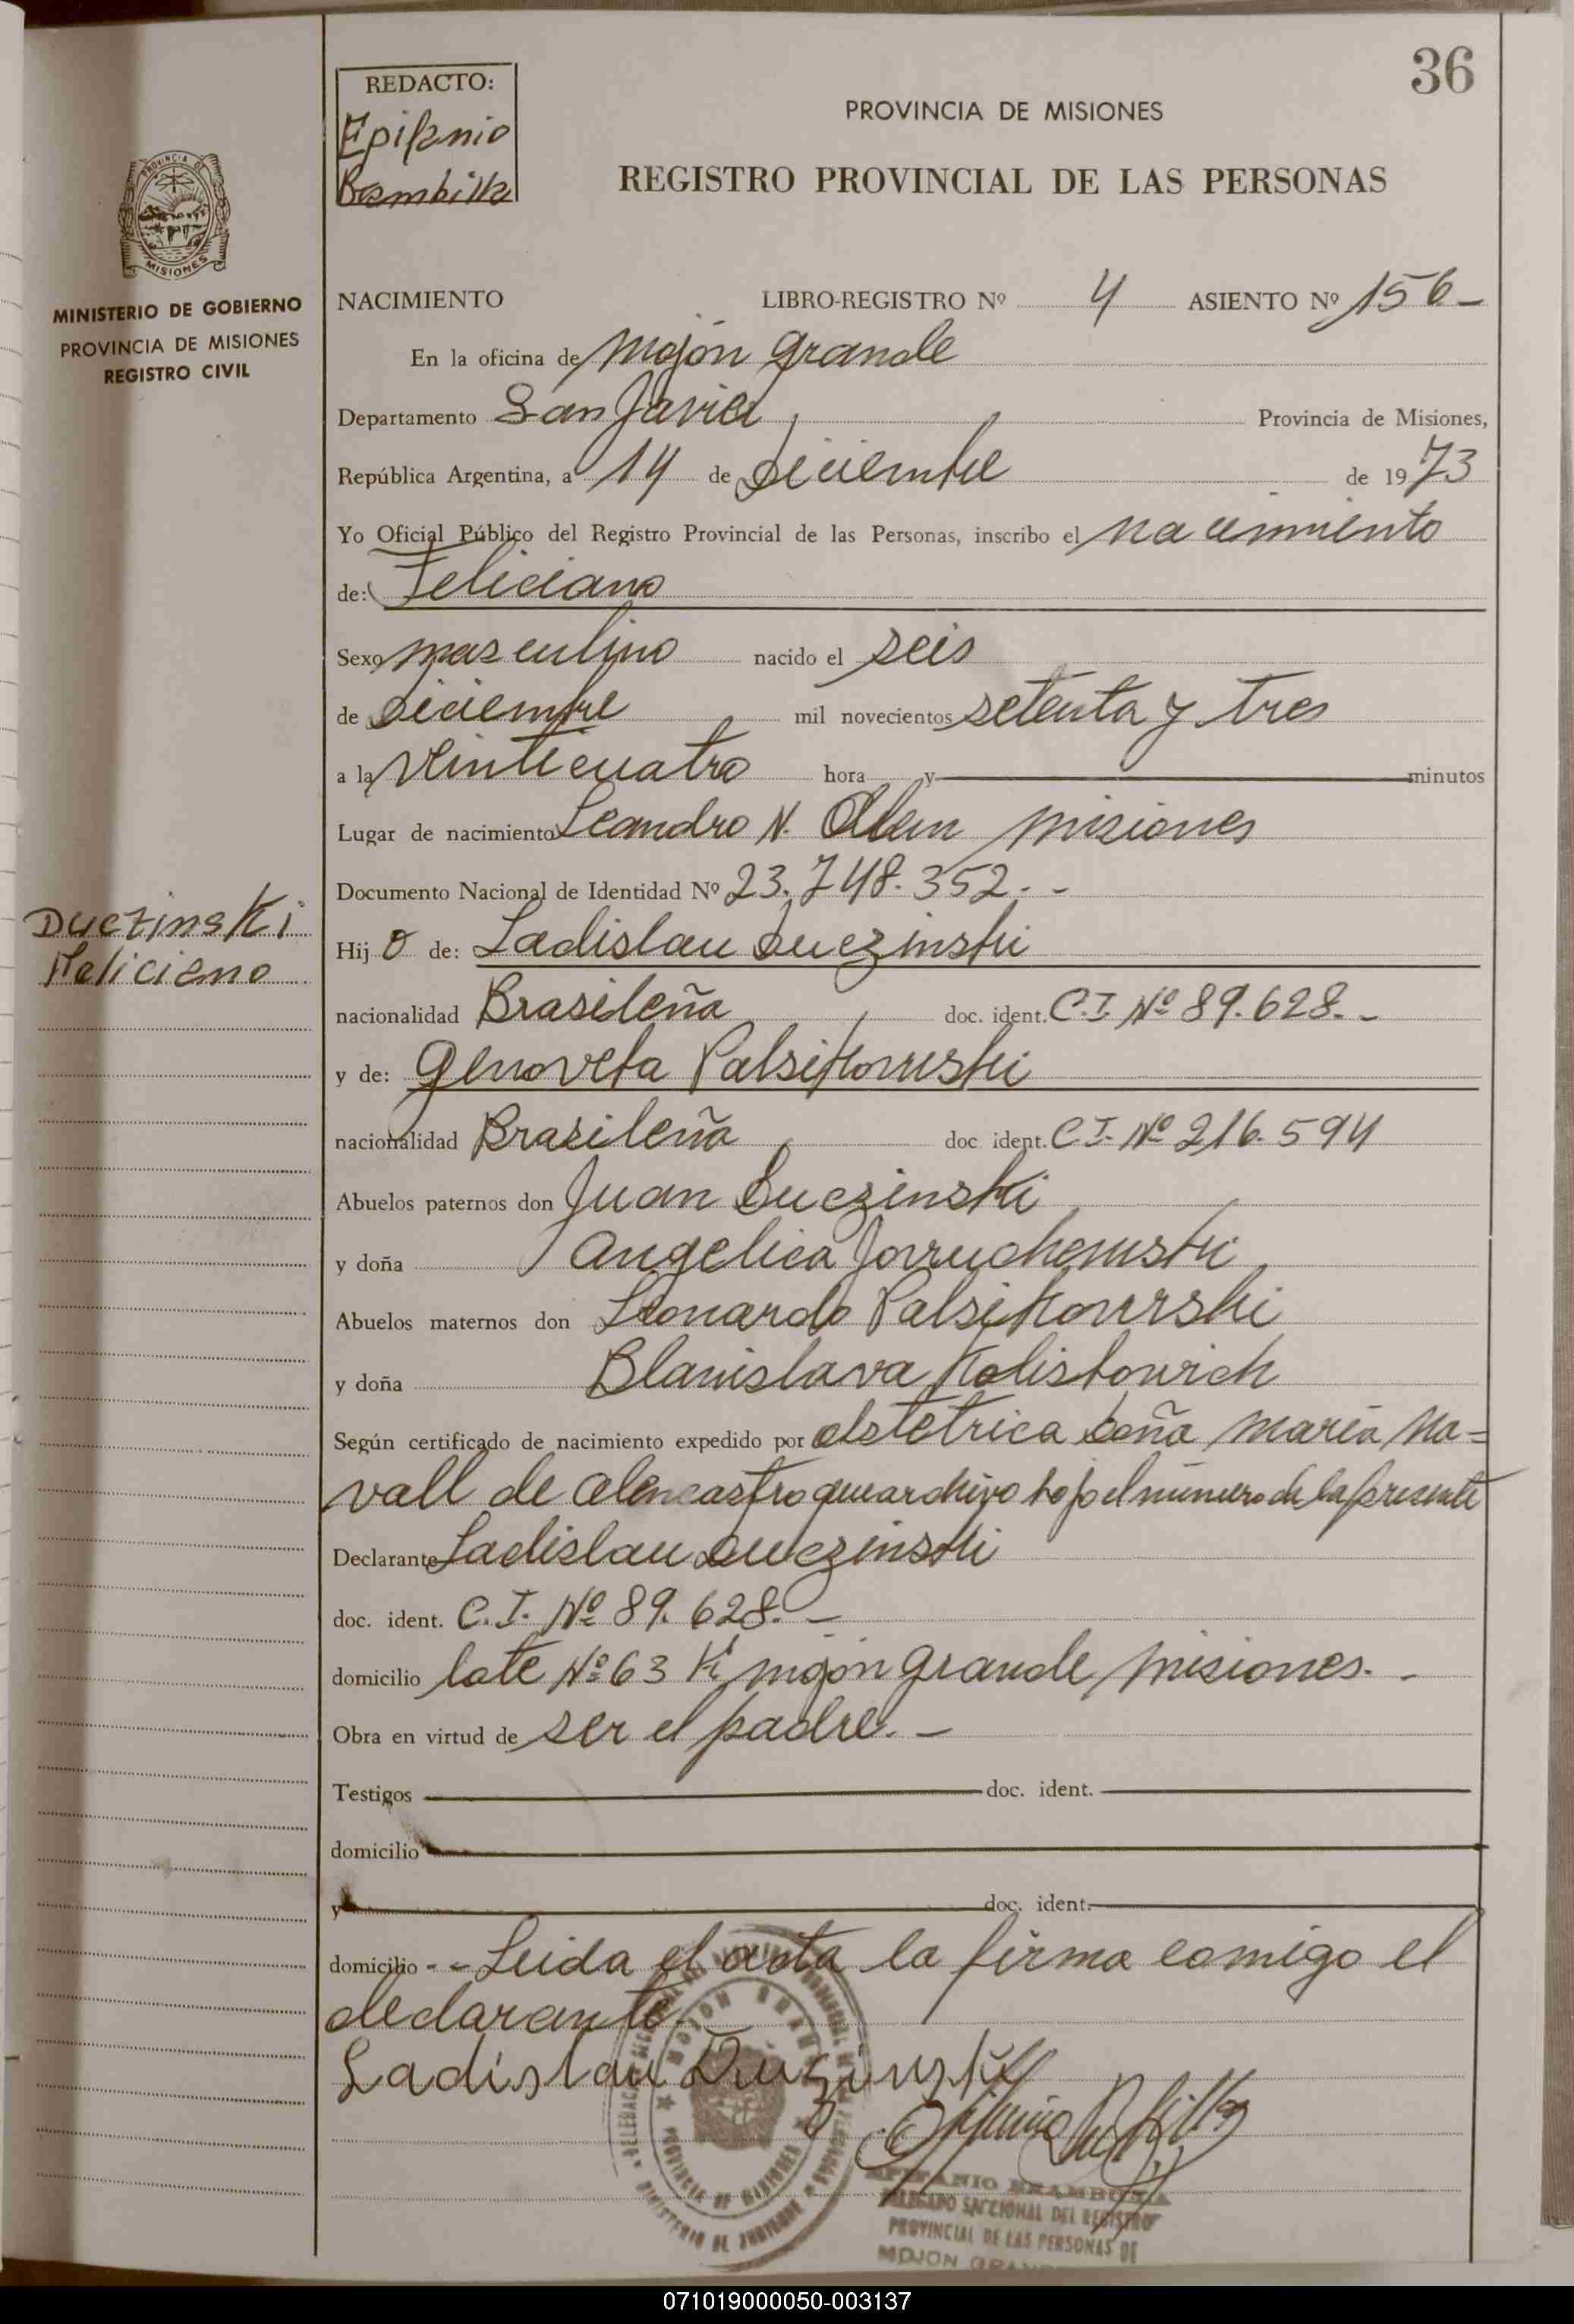 36
REDACTO:
Epifanio
Brambilla
PROVINCIA DE MISIONES
REGISTRO PROVINCIAL DE LAS PERSONAS
PROVINCIA DE
MISIONES
MINISTERIO DE GOBIERNO
PROVINCIA DE MISIONES
REGISTRO CIVIL
NACIMIENTO LIBRO-REGISTRO Nº 4 ASIENTO Nº 156-
En la oficina de Mojón Grande
Departamento San Javier, Provincia de Misiones,
República Argentina, a 14 de diciembre de 1973
Yo Oficial Público del Registro Provincial de las Personas, inscribo el nacimiento
de: Feliciano
Sexo masculino nacido el seis
de diciembre mil novecientos setenta y tres
a la veinticuatro hora y minutos
Lugar de nacimiento Leandro N. Alem Misiones
Documento Nacional de Identidad Nº 23.748.352.-
Duczinski
Feliciano
Hijo de: Ladislau Duczinski
nacionalidad Brasileña, doc. ident. C.I. Nº 89.628.-
y de: Genovefa Palsikowski
nacionalidad Brasileña, doc. ident. C.I. Nº 216.594
Abuelos paternos don Juan Duczinski
y doña Angelica
Abuelos maternos don Leonardo Palsikowski
y doña Blanislava
Según certificado de nacimiento expedido por obstetrica doña María Na=
vall de Alencastro que archivo bajo el número de la presente
Declarante Ladislau Duczinski
doc. ident. C.I. Nº 89.628.-
domicilio lote Nº 63 Mojón Grande, Misiones.-
Obra en virtud de ser el padre.-
Testigos doc. ident.
domicilio
y doc. ident.
domicilio - - Leida el acta la firma comigo el
declarante.
Ladislau Duczinski
MOJON GRANDE
PROVINCIA DE MISIONES
EPIFANIO BRAMBILLA
DELEGADO SECCIONAL DEL REGISTRO
PROVINCIAL DE LAS PERSONAS DE
MOJON GRANDE
071019000050-003137